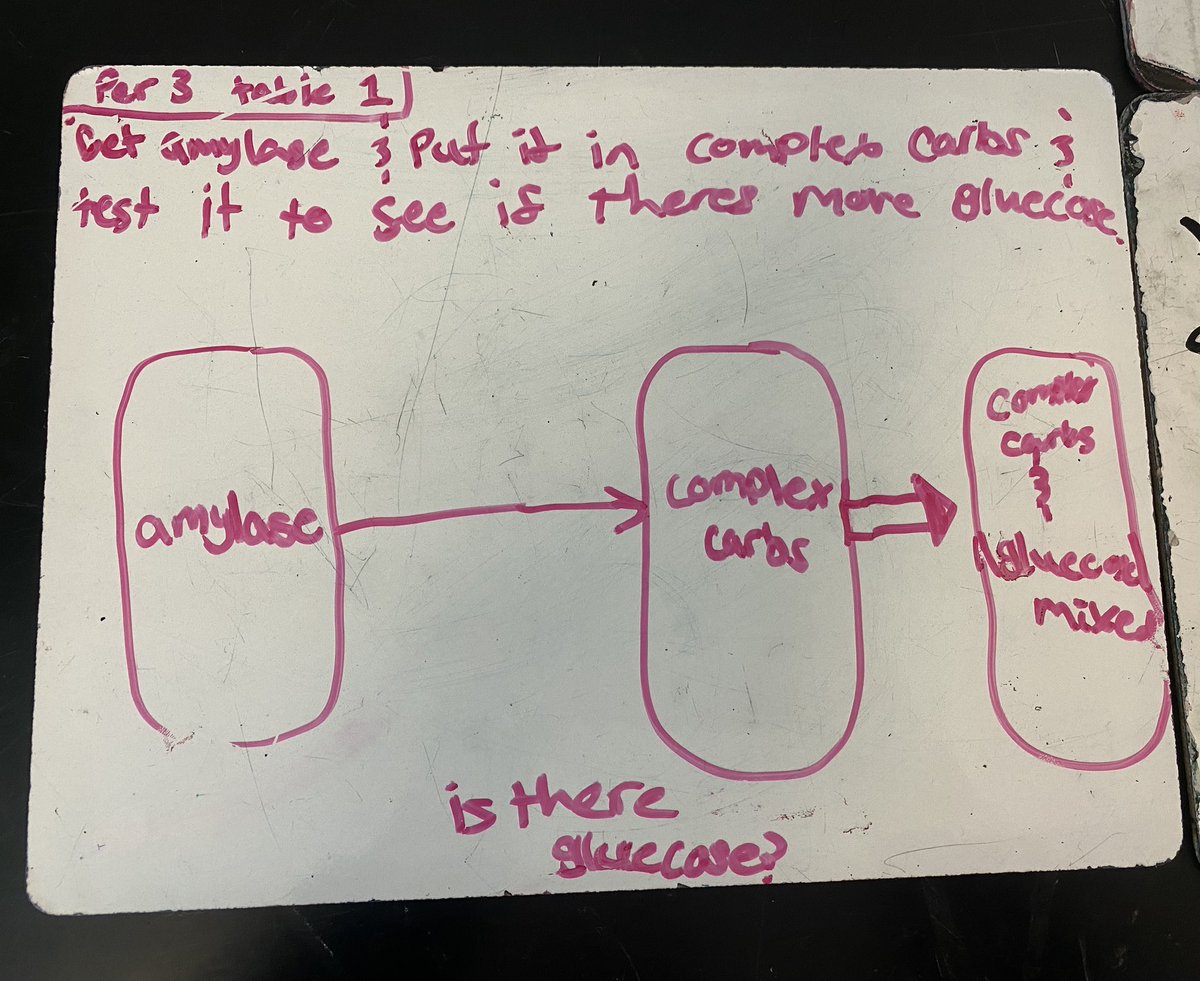 Per 3 table 1
Get amylase & Put it in complex carbs &
test it to see if theres more gluecose.
amylase
complex
carbs
complex
carbs
&
gluecose
mixed
is there
gluecose?